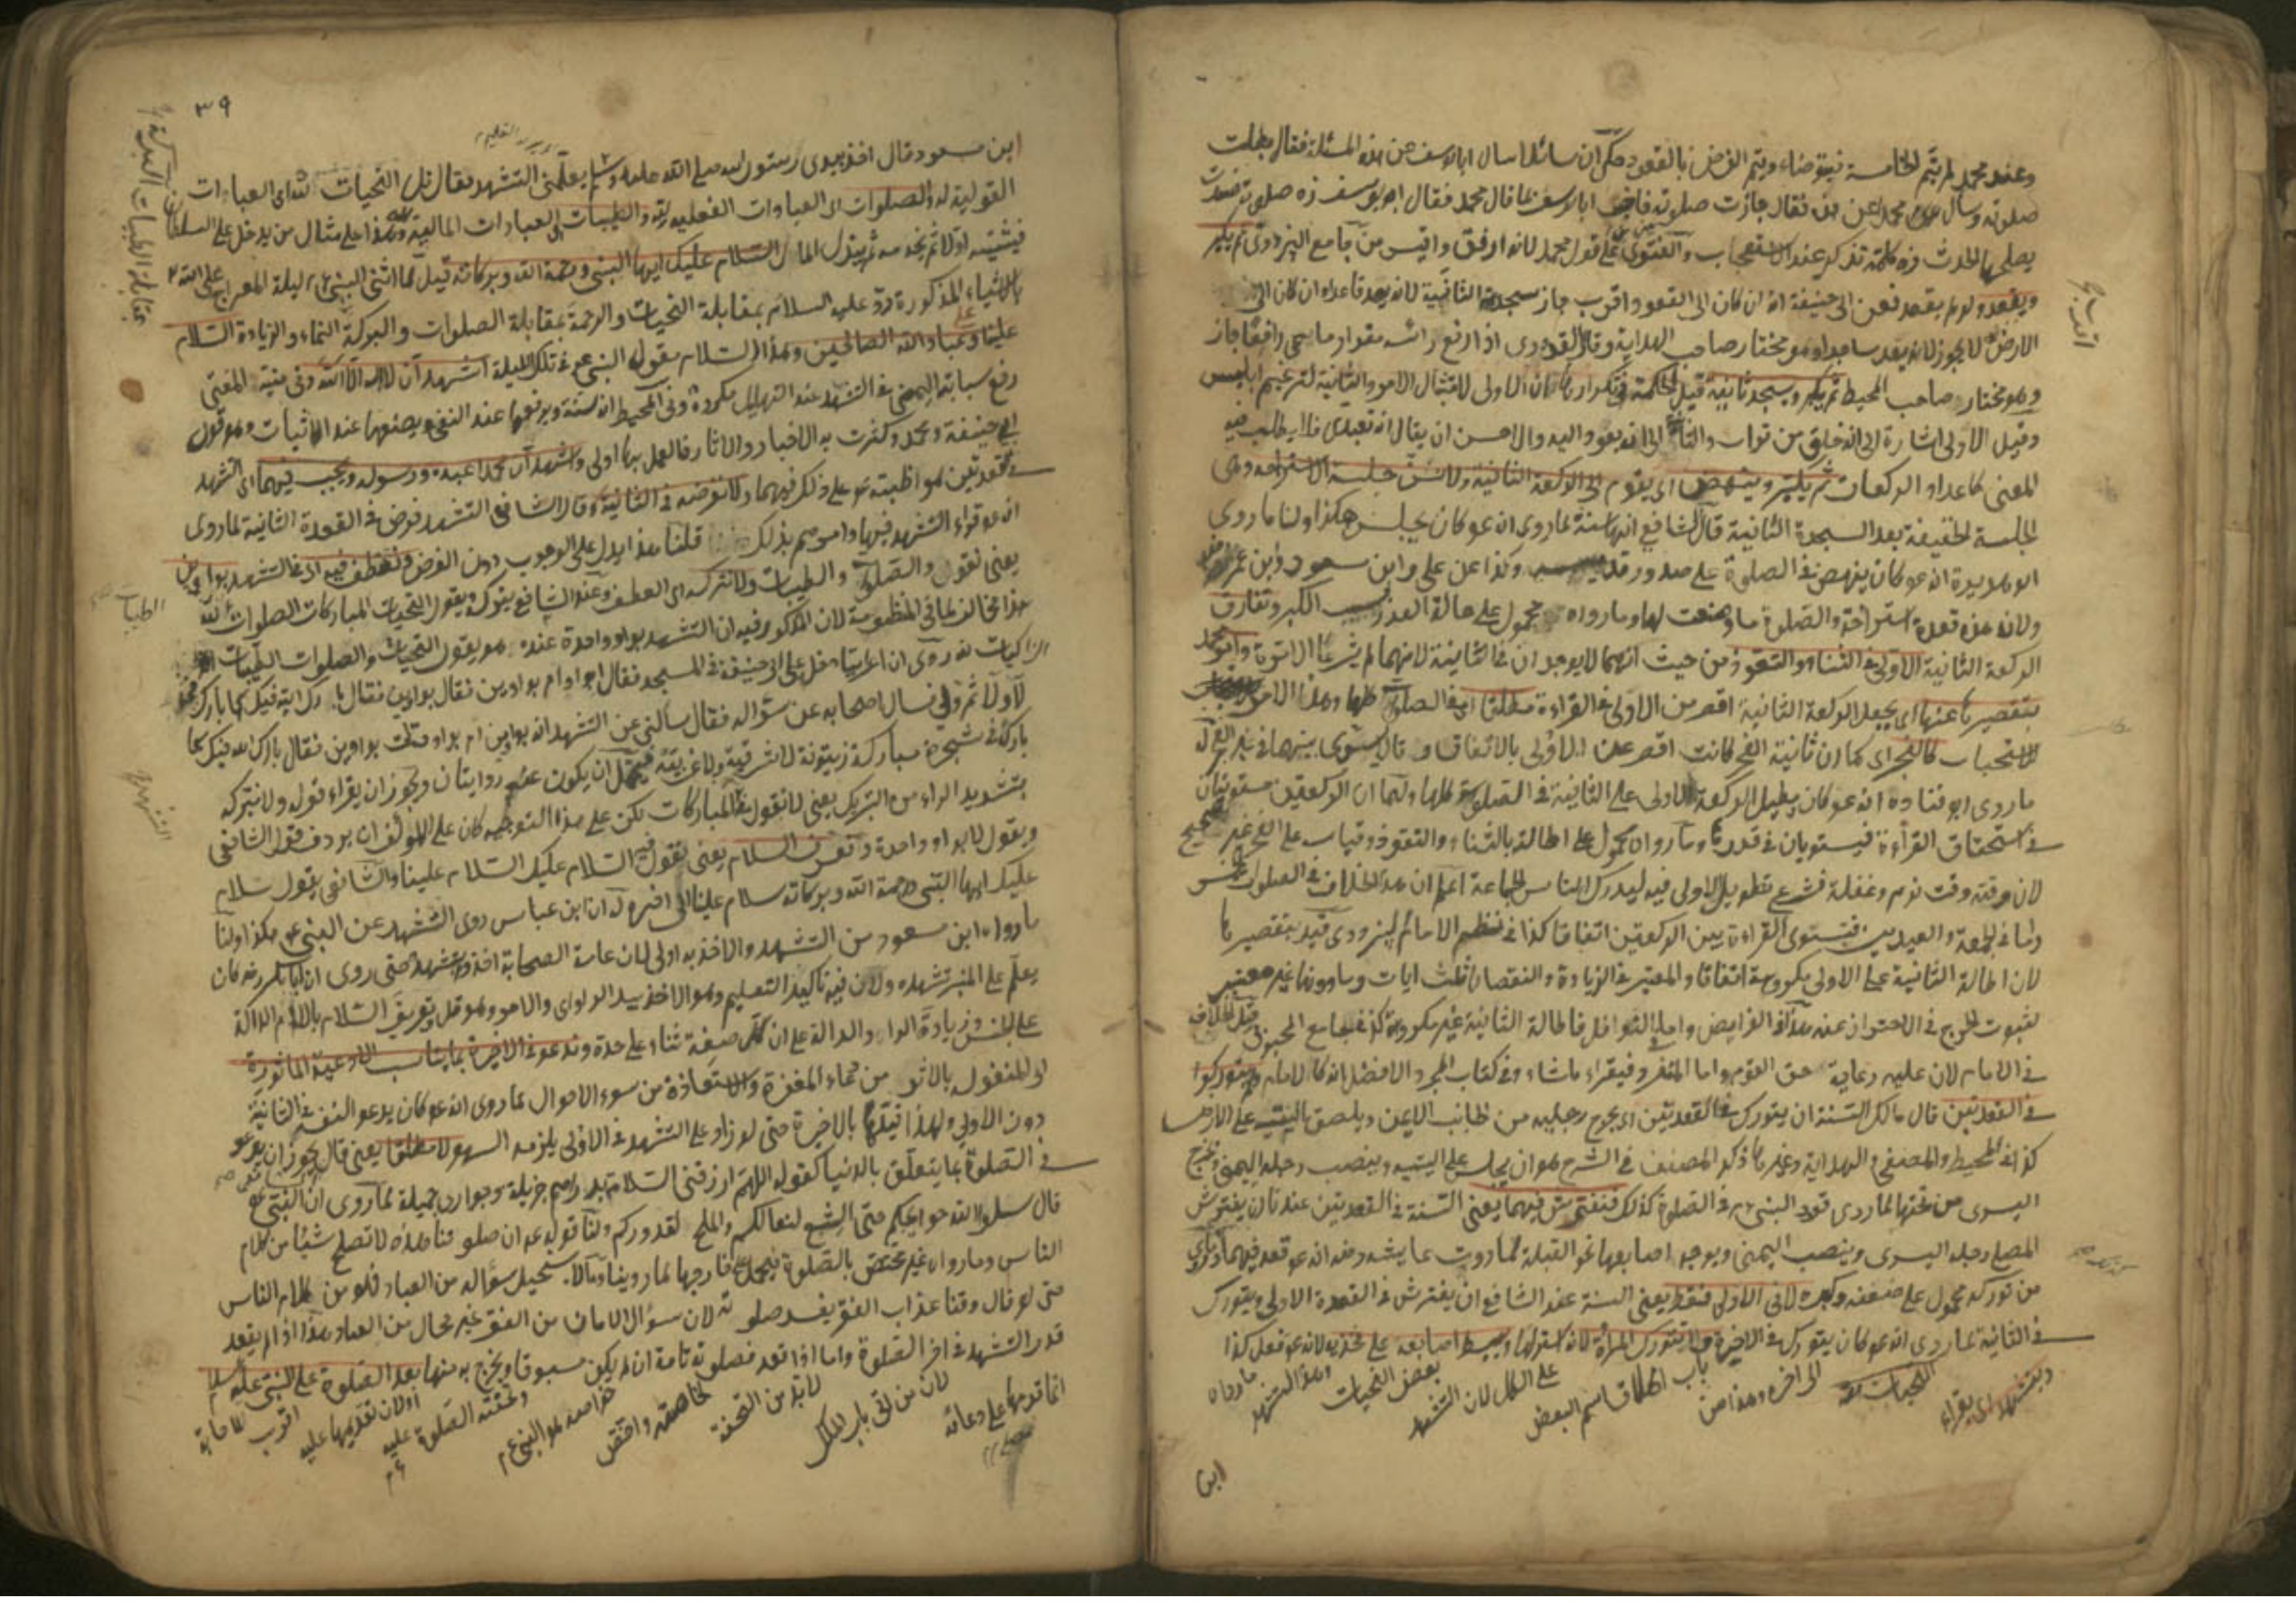 وعند محمد لم يتم الخامسة فيتوضأ ويتم الفرض بالقعود حكي ان سائلا سأل ابا يوسف عن هذه المسئلة فقال بطلت
صلوته وسأل محمدا عن هذه فقال جازت صلوته فاخبر ابا يوسف بما قال محمد فقال ابو يوسف زه صلوة فسدت
يصلحها الحدث زه كلمة تذكر عند الاستعجاب والفتوى على قول محمد لانه ارفق واقيس من جامع البزدوي ثم يكبر
ويقعد ولو لم يقعد فعن ابي حنيفة انه ان كان الى القعود اقرب جاز سجدته الثانية لانه يعد قاعدا وان كان الى
الارض لا يجوز لانه يعد ساجدا وهو مختار صاحب الهداية وقال القدوري اذا رفع رأسه مقدار ما يسمى رافعا جاز
وهو مختار صاحب المحيط ثم يكبر ويسجد ثانية قيل الحكمة في تكرارها ان الاولى لامتثال الامر والثانية لترغيم ابليس
وقيل الاولى اشارة الى انه خلق من تراب والثانية الى انه يعود اليه والاحسن ان يقال انه تعبدي فلا يطلب فيه
المعنى كاعداد الركعات ثم يكبر وينهض اي يقوم الى الركعة الثانية ولا تسن جلسة الاستراحة وهي
الجلسة الخفيفة بعد السجدة الثانية قال الشافعي انها سنة لما روى انه عم كان يجلس هكذا ولنا ما روى
ابو هريرة انه عم كان ينهض في الصلوة على صدور قدميه وكذا عن علي وابن مسعود وابن عمر
ولان هذه قعدة استراحة والصلوة ما وضعت لها وما رواه محمول على حالة العذر بسبب الكبر وتفارق
الركعة الثانية الاولى في الثناء والتعوذ من حيث انهما لا يوجدان في الثانية لانهما لم يشرعا الا مرة وامر محمد
بتقصيرها عنها اي يجعل الركعة الثانية اقصر من الاولى في القراءة مطلقا اي في الصلوة كلها وهذا الامر
للاستحباب كالفجر اي كما ان ثانية الفجر كانت اقصر من الاولى بالاتفاق وقالا يسوى بينهما في غير الفجر له
ما روى ابو قتادة انه عم كان يطيل الركعة الاولى على الثانية في الصلوة كلها ولهما ان الركعتين مستويتان
في استحقاق القراءة فيستويان في قدرها وما رواه محمول على اطالة بالثناء والتعوذ وقياسه على الفجر غير صحيح
لان وقته وقت نوم وغفلة فشرع تطويل الاولى فيه ليدرك الناس الجماعة اعلم ان هذا الخلاف في الصلوات الخمس
واما في الجمعة والعيدين فيستوى القراءة بين الركعتين اتفاقا كذا في نظم الامام البزدوي قيد بتقصيرها
لان اطالة الثانية على الاولى مكروهة اتفاقا والمعتبر في الزيادة والنقصان ثلث ايات وما دونها غير معتبر
لثبوت الحرج في الاحتراز عنه هذا في الفرايض واما في النوافل فاطالة الثانية غير مكروهة كذا في جامع المحبوبي قيل الخلاف
في الامام لان عليه رعاية حق القوم واما المنفرد فيقراء ما شاء وفي كتاب الحجر والافضل انه كالامام ولم يتوركوا
في القعدتين قال مالك السنة ان يتورك في القعدتين اي يخرج رجليه من جانب الايمن ويلصق باليتيه على الارض
كذا في المحيط والمصفى والهداية وغيرها ذكر المصنف في الشرح هو ان يجلس على اليتيه وينصب رجله اليمنى ويخرج
اليسرى من تحتها لما روى قعود النبي عم في الصلوة كذلك فنفترش فيهما يعني السنة في القعدتين عندنا ان يفترش
المصلي رجله اليسرى وينصب اليمنى ويوجه اصابعها نحو القبلة لما روت عايشه رضه انه عم قعد فيهما وما روى
من توركه محمول على ضعفه وكبره لا في الاولى فقط يعني السنة عند الشافعي ان يفترش في القعدة الاولى ويتورك
في الثانية لما روى انه عم كان يتورك في الاخيرة وتتورك المرأة لانه استر لها ويبسط اصابعه على فخذيه لانه عم فعل كذا
ويتشهد اي يقراء التحيات لله الى اخره وهذا من باب اطلاق اسم البعض على الكل لان التشهد بعض التحيات وهذا التشهد ما رواه
ابن
٣٩
ابن مسعود قال اخذ بيدي رسول الله صلى الله عليه وسلم يعلمني التشهد فقال قل التحيات لله اي العبادات
القولية له والصلوات اي العبادات الفعلية لله والطيبات اي العبادات المالية لله وهذا على مثال من يدخل على السلطان
فيثنيه اولا ثم يخدمه ثم يبذل المال السلام عليك ايها النبي ورحمة الله وبركاته قيل لما اثنى النبي عم ليلة المعراج على الله
بالاشياء المذكورة رد عليه السلام بمقابلة التحيات والرحمة بمقابلة الصلوات والبركة النماء والزيادة السلام
علينا وعلى عباد الله الصالحين وهذا السلام مقول النبي عم في تلك الليلة اشهد ان لا اله الا الله وفي منية المفتي
رفع سبابته اليمنى في التشهد عند التهليل مكروه وفي المحيط انه سنة ويرفعها عند النفي ويضعها عند الاثبات وهو قول
ابي حنيفة ومحمد وكثرت به الاخبار والاثار فالعمل بها اولى واشهد ان محمدا عبده ورسوله ويجب فيهما اي التشهد
في القعدتين لمواظبته عم على ذلك فيهما ولا نفرضه في الثانية وقال الشافعي التشهد فرض في القعدة الثانية لما روى
انه عم قراء التشهد فيها وامرهم بذلك قلنا هذا يدل على الوجوب دون الفرض ونعطف فيه اي في التشهد بواوين
يعني نقول والصلوات والطيبات ولا نتركه اي العطف وعند الشافعي يتركه ويقول التحيات المباركات الصلوات لله
هذا مخالف لما في المنظومة لان المذكور فيه ان التشهد بواو واحدة عنده وهو يقول التحيات والصلوات الطيبات
الزاكيات لله روى ان اعرابيا دخل على ابي حنيفة في المسجد فقال ابواو ام بواوين فقال بواوين فقال بارك الله فيك كما بارك في
لا ولا ثم ولى فسال اصحابه عن سؤاله فقال سألني عن التشهد انه بواوين ام بواو وقلت بواوين فقال بارك الله فيك كما
بارك في شجرة مباركة زيتونة لا شرقية ولا غربية فيحتمل ان يكون عنه روايتان ويجوز ان يقراء قوله ولا نتبركه
بتشديد الراء من التبريك يعني لا نقول المباركات لكن على هذا التوجيه كان على المؤلف ان يردف قول الشافعي
ويقول لا بواو واحدة ونعرف السلام يعني نقول السلام عليك السلام علينا والشافعي يقول سلام
عليك ايها النبي ورحمة الله وبركاته سلام علينا الى اخره له ان ابن عباس روى التشهد عن النبي عم هكذا ولنا
ما رواه ابن مسعود من التشهد والاخذ به اولى لان عامة الصحابة اخذوا تشهده حتى روى ان ابا بكر رضه كان
يعلم على المنبر تشهده ولان فيه تأكيد التعليم وهو الاخذ بيد الراوي والامر وهو قل وتعريف السلام بالالف واللام الدالة
على الجنس وزيادة الواو الدالة على ان كل صيغة ثناء على حدة وندعو في الاخيرة بما يناسب الادعية المأثورة
اي المنقولة بالاثر من دعاء المغفرة والاستعاذة من سوء الاحوال لما روى انه عم كان يدعو لنفسه في الثانية
دون الاولى ولهذا قيدها بالاخيرة حتى لو زاد على التشهد في الاولى يلزمه السهو لا مطلقا يعني قال يجوز ان يدعو
في الصلوة بما يتعلق بالدنيا كقوله اللهم ارزقني السلامة بدراهم جزيلة وجواري جميلة لما روى ان النبي عم
قال سلوا الله حوايجكم حتى الشسع لنعالكم والملح لقدوركم ولنا قوله عم ان صلوتنا هذه لا تصلح شيئا من كلام
الناس وما رواه غير مختص بالصلوة فيحمل على خارجها لما روينا وما لا يستحيل سؤاله من العباد فهو من كلام الناس
حتى لو قال وقنا عذاب الفقر يفسد صلوته لان سؤال الامان من الفقر غير محال من العباد هذا اذا لم يقعد
قدر التشهد في اخر الصلوة واما اذا قعد فصلوته تامة ان لم يكن مسبوقا ويخرج به منها بعد الصلوة على النبي عليه السلام
انما قدمها على دعائه لان من اتى باب الملك لا بد من التحفة لخاصته واخص خواصه هو النبي عم وتحفته الصلوة عليه اولان تقديمها عليه اقرب للاجابة